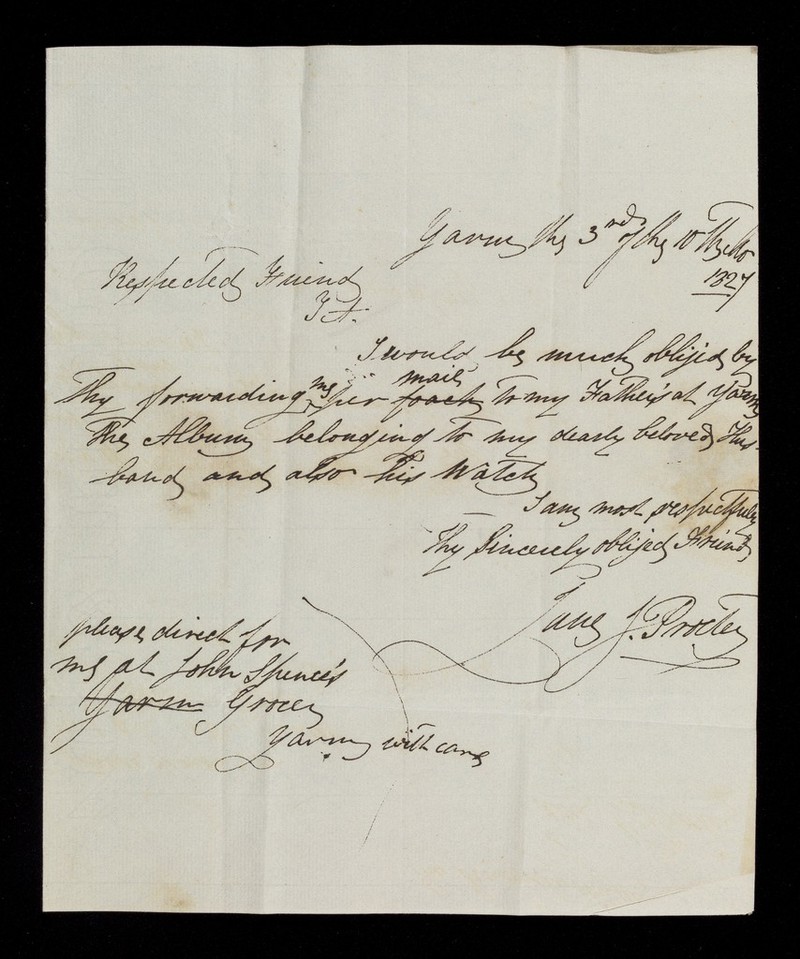 Yarm the 3rd of the 10 Th Mo
1827
Respected Friend
T A.
I would be much oblijed by
Thy forwarding me per mail coach to my Father's at Yarm
The Album belonging to my dearly beloved Hus-
band and also his Watch
I am most respectfully
Thy Sincerely oblijed Friend
Jane J. Procter
please direct for
me at John Spence's
Yarm Grocer
Yarm with care